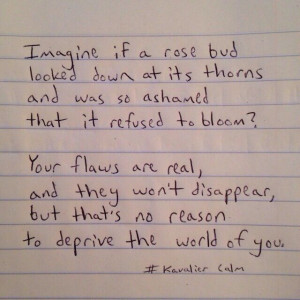 Imagine if a rose bud
looked down at its thorns
and was so ashamed
that it refused to bloom?
Your flaws are real,
and they won't disappear,
but that's no reason
to deprive the world of you.
# Kavalier Calm